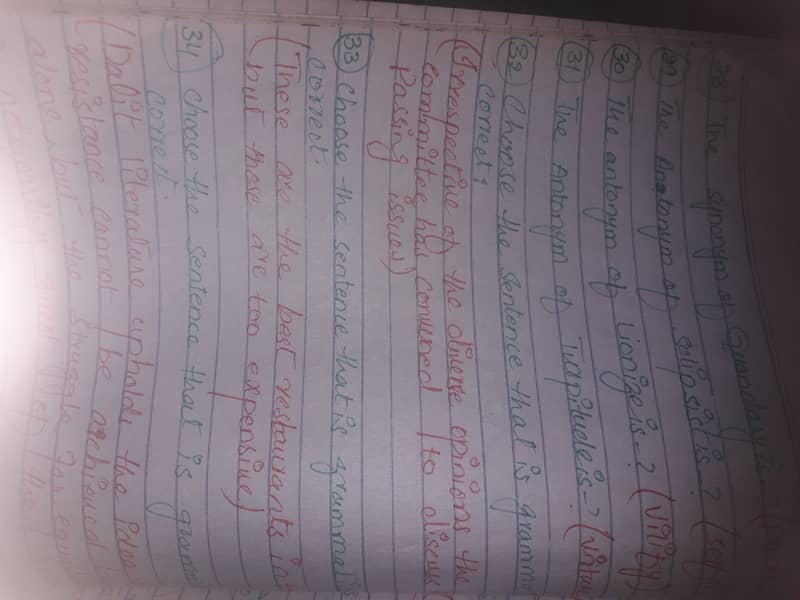 28 The synonym of Quandary is
29 The Anatonym of solipsist is? (self
30 The antonym of Lionize is-? (vilify)
31 The Antonym of Turpitude is-? (virtue
32 Choose the sentence that is gramma
correct.
(Irrespective of the diverse opinions the
committee has convened to discuss
Passing issues)
33 choose the sentence that is gramma
correct.
(These are the best restaurants in
but these are too expensive)
34 choose the sentence that is gramm
correct.
(Dalit literature upholds the idea
resistance cannot be archived
alone but the struggle for equ